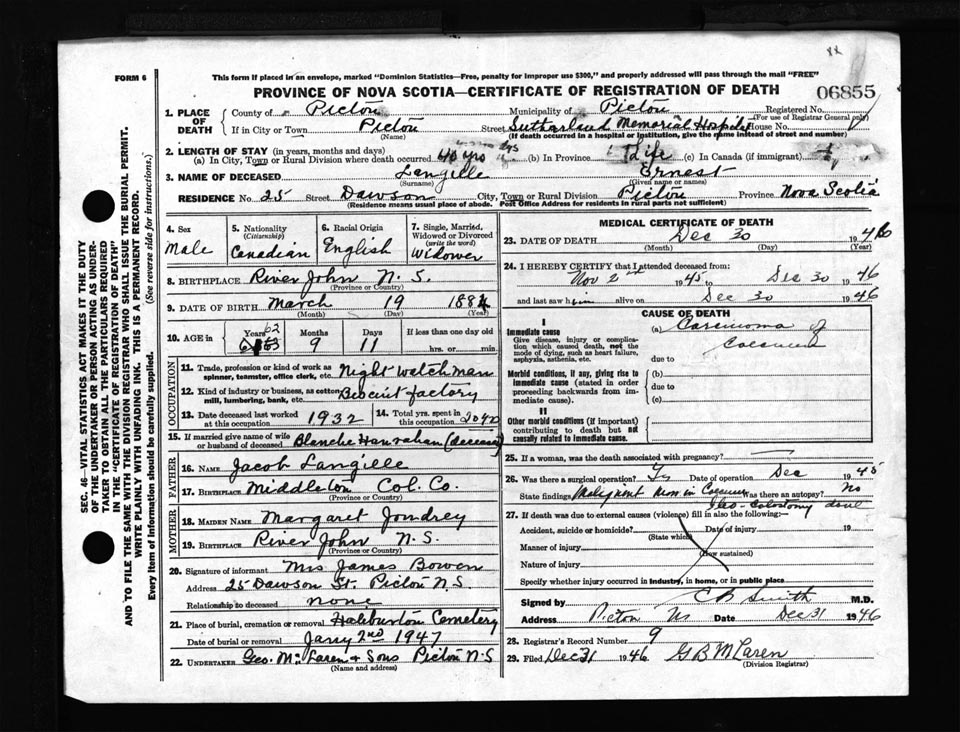 FORM 6
This form if placed in an envelope, marked "Dominion Statistics—Free, penalty for improper use $300," and properly addressed will pass through the mail "FREE"
PROVINCE OF NOVA SCOTIA—CERTIFICATE OF REGISTRATION OF DEATH
06855
1. PLACE OF DEATH
County of Pictou Municipality of Pictou Registered No.
(For use of Registrar General only)
If in City or Town Pictou Street Sutherland Memorial Hospital House No.
(Name) (If death occurred in a hospital or institution, give the name instead of street and number)
2. LENGTH OF STAY (in years, months and days)
(a) In City, Town or Rural Division where death occurred 40 yrs (b) In Province Life (c) In Canada (if immigrant)
3. NAME OF DECEASED Langille Ernest
(Surname) (Given name or names)
RESIDENCE No. 25 Street Dawson City, Town or Rural Division Pictou Province Nova Scotia
(Residence means usual place of abode. Post Office Address for residents in rural parts not sufficient)
4. Sex Male
5. Nationality (Citizenship) Canadian
6. Racial Origin English
7. Single, Married, Widowed or Divorced (write the word) Widower
8. BIRTHPLACE River John N. S.
(Province or Country)
9. DATE OF BIRTH March 19 1884
(Month) (Day) (Year)
10. AGE in Years 62 Months 9 Days 11 If less than one day old hrs. or min.
OCCUPATION
11. Trade, profession or kind of work as spinner, teamster, office clerk, etc. Night watchman
12. Kind of industry or business, as cotton mill, lumbering, bank, etc. Biscuit factory
13. Date deceased last worked at this occupation 1932
14. Total yrs. spent in this occupation 20 yrs
15. If married give name of wife or husband of deceased Blanche Hanraham (deceased)
FATHER
16. NAME Jacob Langille
17. BIRTHPLACE Middleton Col. Co.
(Province or Country)
MOTHER
18. MAIDEN NAME Margaret Joudrey
19. BIRTHPLACE River John N. S.
(Province or Country)
20. Signature of informant Mrs James Bowen
Address 25 Dawson St. Pictou N.S
Relationship to deceased none
21. Place of burial, cremation or removal Haliburton Cemetery
Date of burial or removal Janry 2nd 1947
22. UNDERTAKER Geo. McLaren & Sons Pictou N.S
(Name and address)
MEDICAL CERTIFICATE OF DEATH
23. DATE OF DEATH Dec 30 1946
(Month) (Day) (Year)
24. I HEREBY CERTIFY that I attended deceased from:
Nov 2nd 1945 to Dec 30 1946
and last saw him alive on Dec 30 1946
CAUSE OF DEATH
I
Immediate cause (a) Carcinoma of
Give disease, injury or complication which caused death, not the mode of dying, such as heart failure, asphyxia, asthenia, etc.
due to
Morbid conditions, if any, giving rise to immediate cause (stated in order proceeding backwards from immediate cause).
(b)
due to
(c)
II
Other morbid conditions (if important) contributing to death but not causally related to immediate cause.
25. If a woman, was the death associated with pregnancy?
26. Was there a surgical operation? Date of operation Dec 1945
State findings Malignant in Was there an autopsy? No
Ileo-Colostomy done
27. If death was due to external causes (violence) fill in also the following:—
Accident, suicide or homicide? Date of injury 19
(State which)
Manner of injury
(How sustained)
Nature of injury
Specify whether injury occurred in industry, in home, or in public place
Signed by C B Smith M.D.
Address Pictou NS Date Dec 31 1946
28. Registrar's Record Number 9
29. Filed Dec 31 1946 G B McLaren
(Division Registrar)
SEC. 46—VITAL STATISTICS ACT MAKES IT THE DUTY
OF THE UNDERTAKER OR PERSON ACTING AS UNDERTAKER
TO OBTAIN ALL THE PARTICULARS REQUIRED
IN THE "CERTIFICATE OF REGISTRATION OF DEATH"
AND TO FILE THE SAME WITH THE DIVISION REGISTRAR WHO SHALL ISSUE THE BURIAL PERMIT.
WRITE PLAINLY WITH UNFADING INK. THIS IS A PERMANENT RECORD.
Every item of information should be carefully supplied. (See reverse side for instructions.)